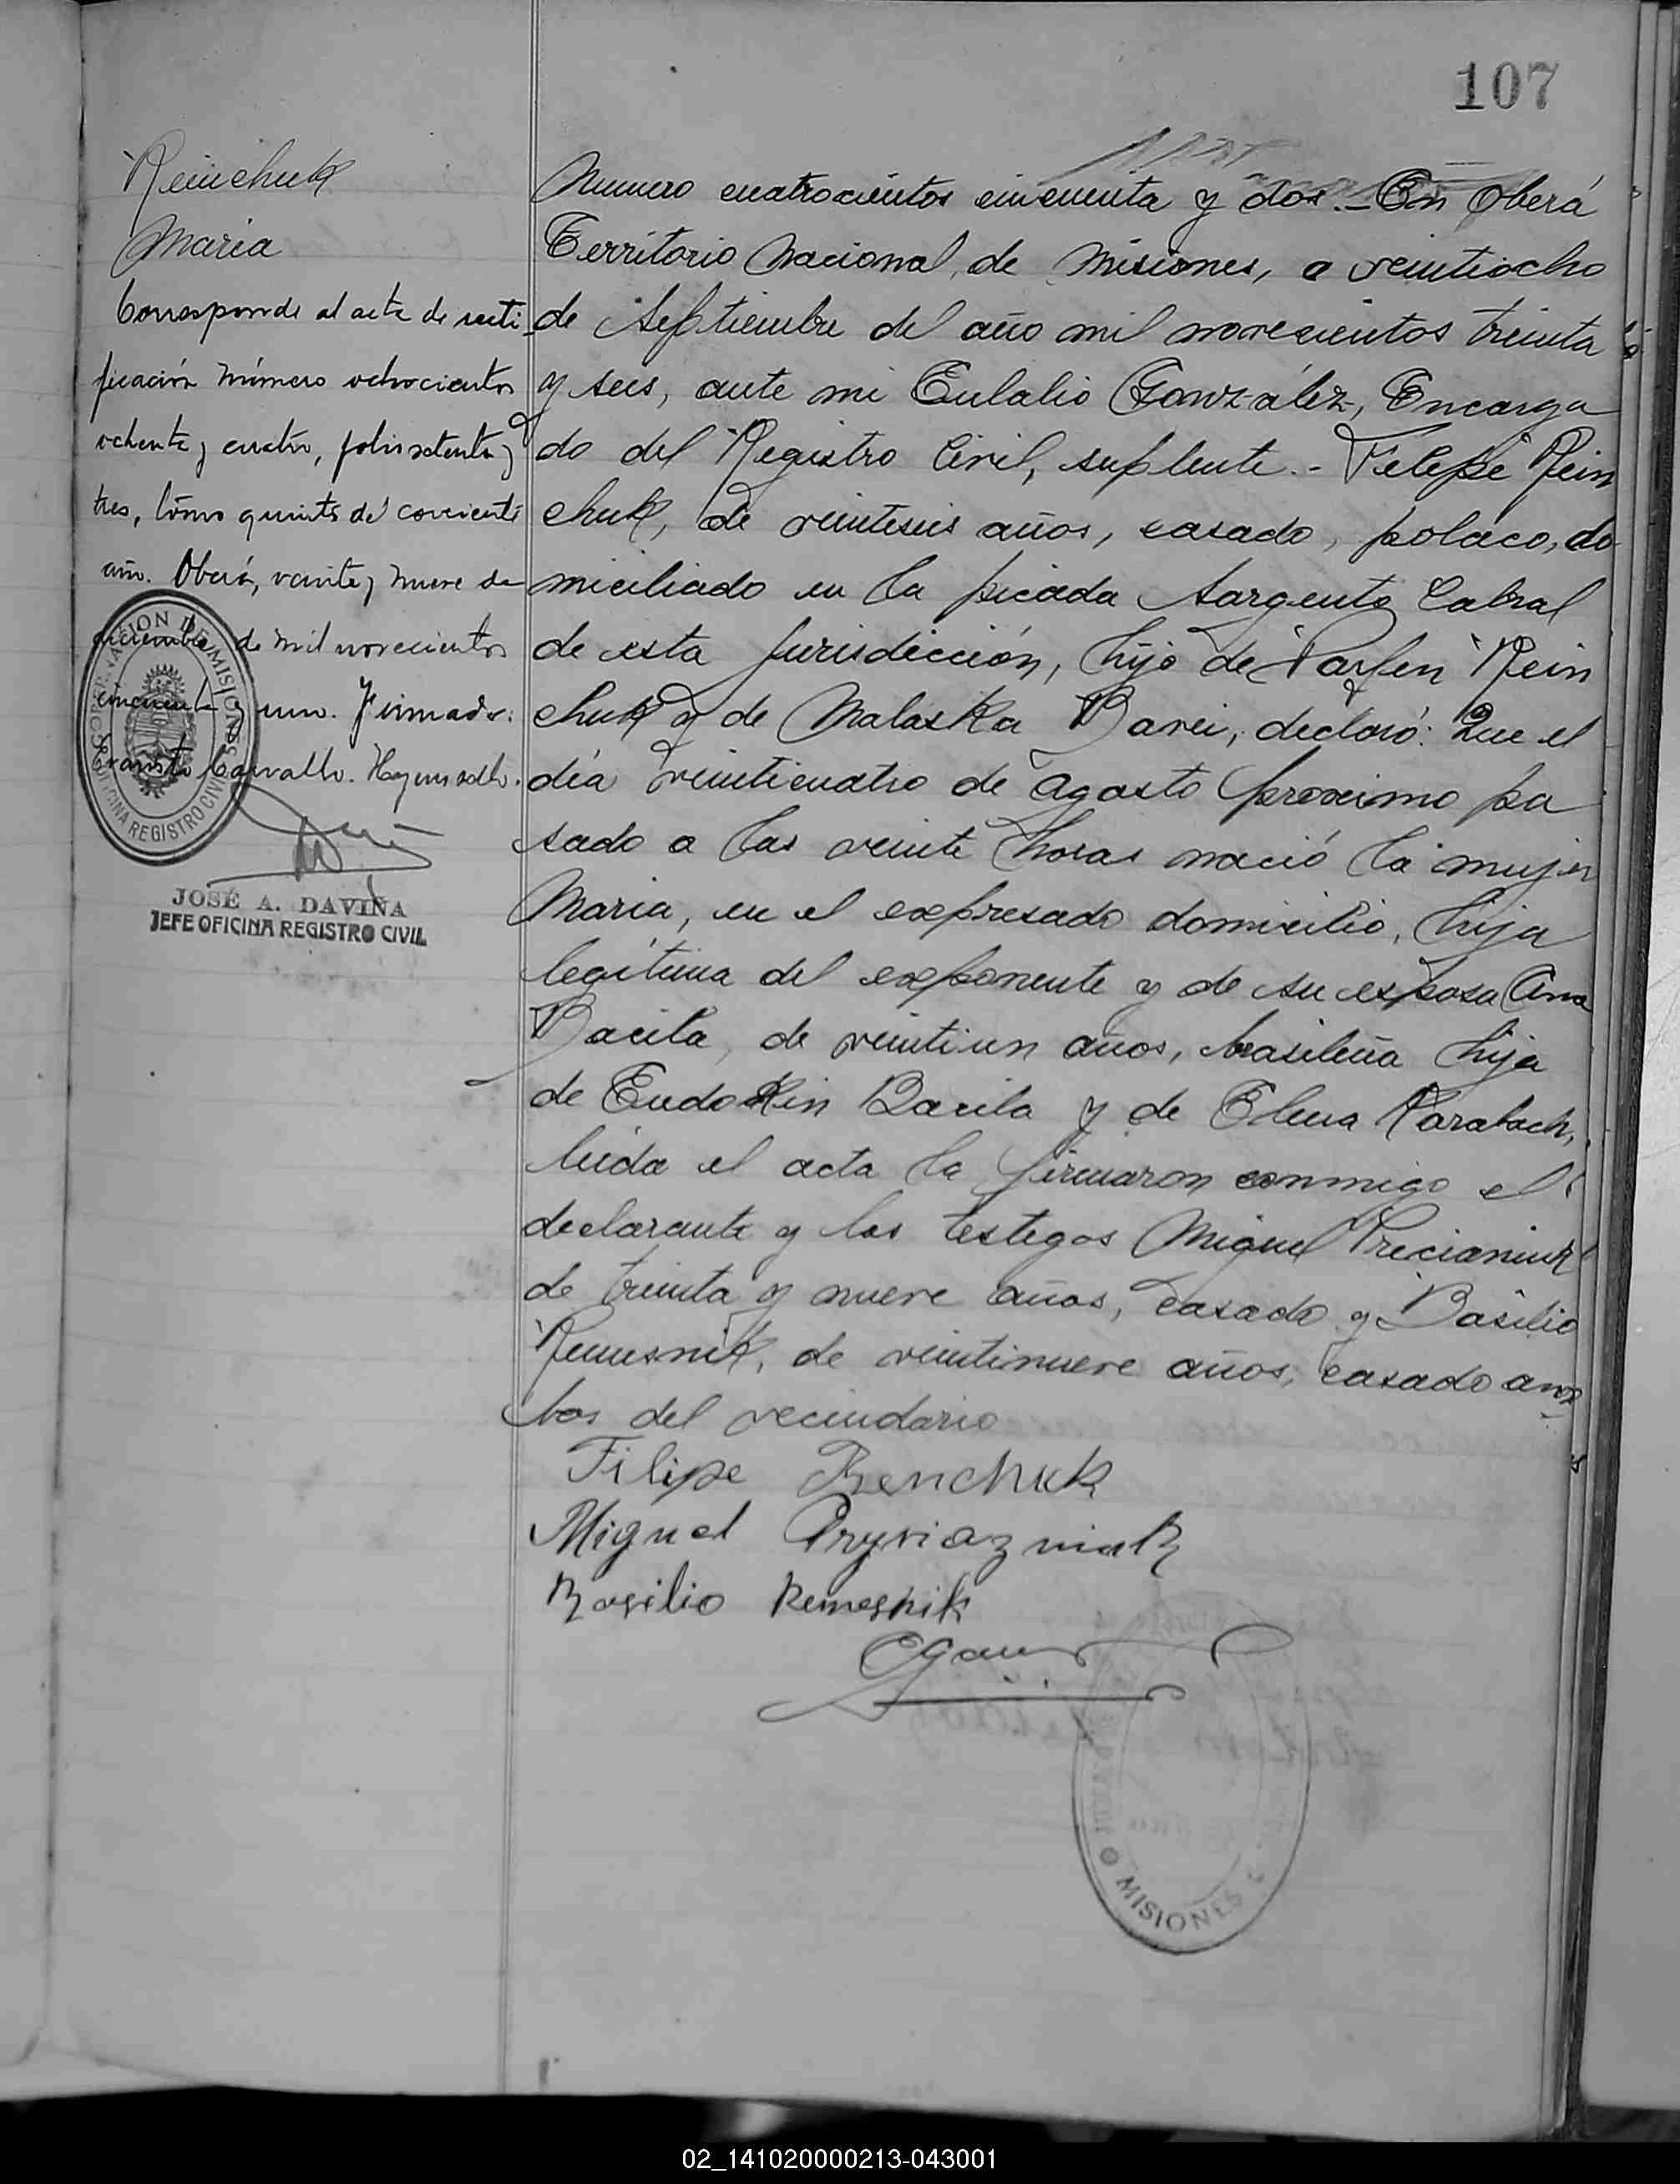 107
Reinchuk
Maria
Corresponde al acta de recti-
ficación número ochocientos
ochenta y cuatro, folio setenta y
tres, tomo quinto del corriente
año. Oberá, veinte y nueve de
diciembre de mil novecientos
cincuenta y uno. Firmado:
Evaristo Carvallo. Hay un sello.
JOSÉ A. DAVIÑA
JEFE OFICINA REGISTRO CIVIL
Numero cuatrocientos cincuenta y dos.- En Oberá
Territorio Nacional de Misiones, a veintiocho
de Septiembre del año mil novecientos treinta
y seis, ante mi Eulalio González, Encarga
do del Registro Civil, suplente.- Felipe Rein
chuk, de veinteseis años, casado, polaco, do
miciliado en la picada Sargento Cabral
de esta jurisdicción, hijo de Parfen Rein
chuk y de Malaska Barei, declaró: Que el
día veinticuatro de Agosto proximo pa
sado a las veinte horas nació la mujer
Maria, en el expresado domicilio, hija
legítima del exponente y de su esposa Ana
Bacila, de veintiun años, brasileña hija
de Eudokin Bacila y de Elena Karabach,
leida el acta la firmaron conmigo el
declarante y los testigos Miguel
de treinta y nueve años, casado y Basilio
Remesnik, de veintinueve años, casado am
bos del vecindario
Filipe Renchuk
Miguel Pryviazniak
Basilio Remesnik
EGonz
MISIONES
02_141020000213-043001